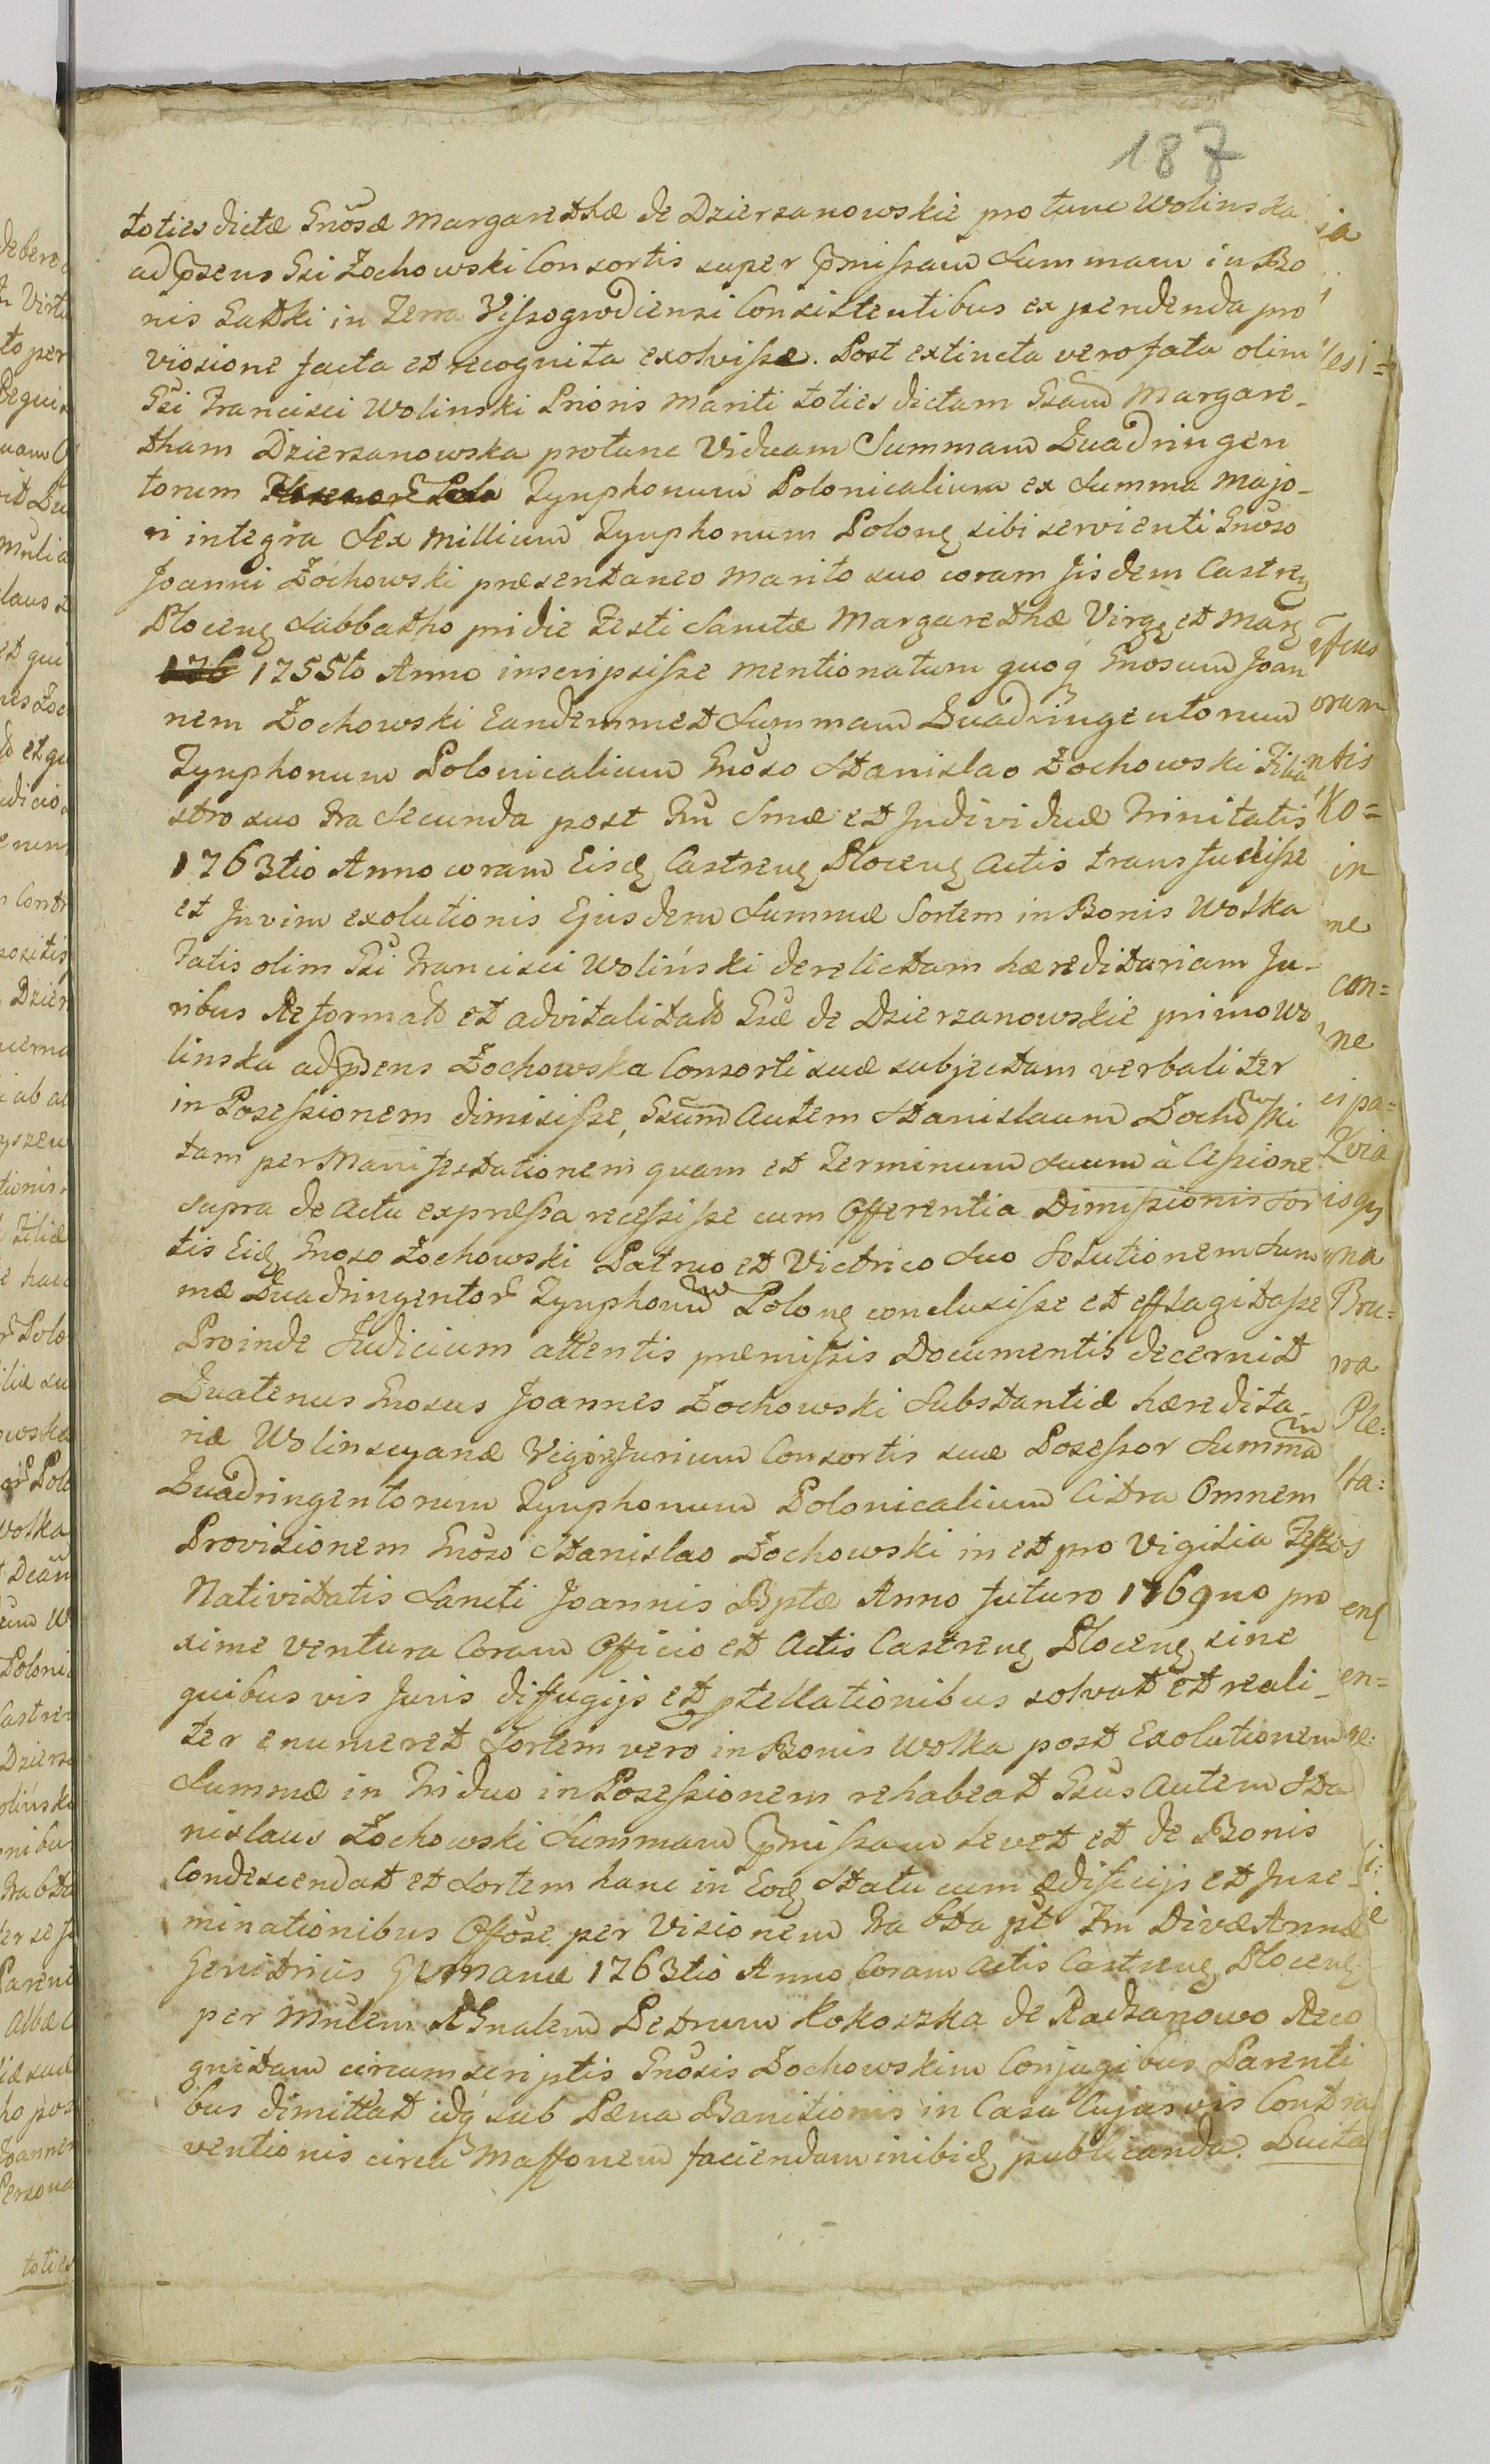 187
toties dictæ Gnosæ Margarethæ de Dzierzanowskie pro tunc Wolinska
ad præsens Gsi Żochowski Consortis super præmissam Summam in Bo
nis Gatki in Terra Vissogrodiensi Consistentibus expendenda pro
visione facta et recognita exolvisse. Post extincta vero fata olim
Gsi Francisci Wolinski Prioris Mariti toties dictam Gsam Margare-
tham Dzierzanowska protunc Viduam Summam Quadringen
torum Tynphonum Polonicalium ex Summa Majo-
ri integra Sex Millium Tynphonum Polonq sibi servienti Gnoso
Joanni Żochowski præsentaneo Marito suo coram Jisdem Castrenq
Plocenq Sabbatho pridie Festi Sanctæ Margarethæ Virgq et Marq
176 1755to Anno inscripsisse mentionatum quoq Gnosum Joan
nem Żochowski Eandemmet Summam Quadringentorum
Tynphonum Polonicalium Gnoso Stanislao Żochowski Filia
stro suo Fra Secunda post Fm Smæ et Individuæ Trinitatis
1763tio Anno coram Eisdq Castrenq Plocenq Actis transfudisse
et Invim exolutionis Ejusdem Summæ Sortem in Bonis Wolka
Fatis olim Gsi Francisci Woliński derelictam hæreditariam Ju-
ribus Reformato et advitalitato Gsæ de Dzierzanowskie primo Wo
linska ad præsens Żochowska Consorti suæ subjectam verbaliter
in Posessionem dimisisse, Gsum Autem Stanislaum Żochowski
tam per Manifestationem quam et Terminum suum à Cessione
supra de Actu expressa recessisse cum Offerentia Dimissionis Sor
tis Eidq Gnoso Żochowski Patruo et Victrico Suo Solutionem Sum
mæ Quadringentor Tynphonum Polonq conclusisse et efflagitasse
Proinde Judicium attentis præmissis Documentis decernit
Quatenus Gnosus Joannes Żochowski Substantiæ hæredita-
riæ Wolinscyanæ Vigore Jurium Consortis suæ Posessor Summam
Quadringentorum Tynphonum Polonicalium Citra Omnem
Provisionem Gnoso Stanislao Żochowski in et pro Vigilia Festi
Nativitatis Sancti Joannis Bptæ Anno futuro 1769no pro
xime ventura Coram Officio et Actis Castrenq Plocenq sine
quibusvis Juris diffugijs et ptellationibus solvat et reali-
ter enumeret Sortem vero in Bonis Wolka post Exolutionem
Summæ in Triduo in Posessionem rehabeat Gsus Autem Sta
nislaus Żochowski Summam præmissam levet et de Bonis
Condescendat et Sortem hanc in Eodq Statu cum ædificijs et Inse-
minationibus Offose per Visionem Fra 6ta pt Fm Divæ Annæ
Genitricis Germanæ 1763tio Anno Coram Actis Castrenq Plocenq
per Mnlem RGnalem Petrum Kokoszka de Radzanowo Reco
gnitam circumscriptis Gnosis Żochowskim Conjugibus Parenti
bus dimittat idq sub Pæna Banitionis in Casu Cujusvis Contra
ventionis circa Maffonem faciendam inibidq publicanda. Luita